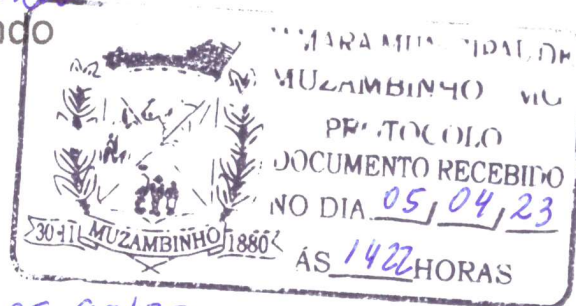 ndo
CÂMARA MUNICIPAL DE
MUZAMBINHO MG
PROTOCOLO
DOCUMENTO RECEBIDO
NO DIA 05/04/23
ÁS 1422 HORAS
30-11 MUZAMBINHO 1880